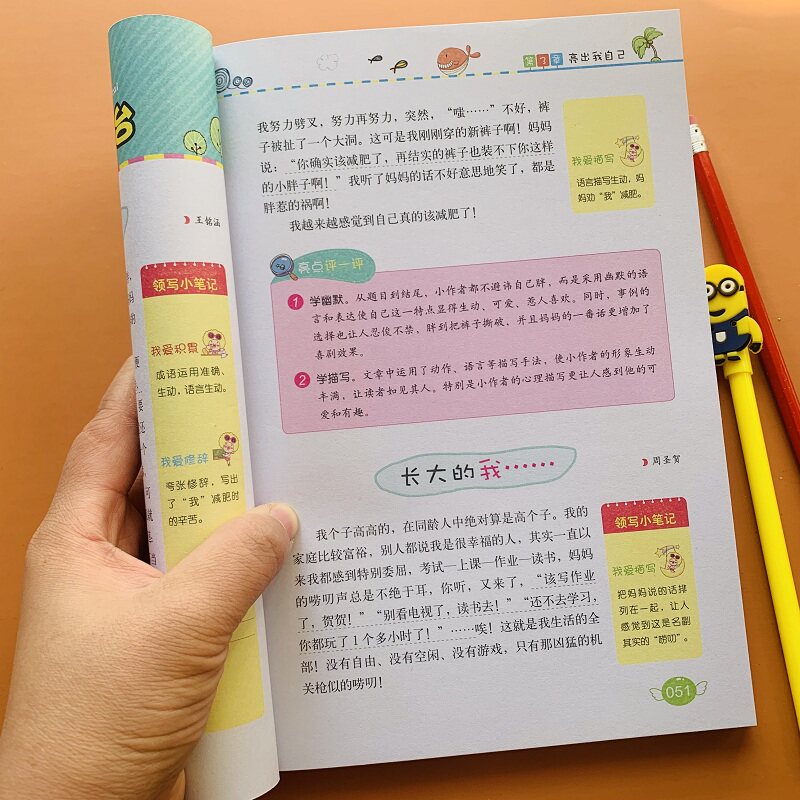 台
王铭涵
领写小笔记
我爱积累
成语运用准确、
生动，语言生动。
我爱修辞
夸张修辞，写出
了“我”减肥时
的辛苦。
第3章 亮出我自己
我努力劈叉，努力再努力，突然，“嗤……”不好，裤
子被扯了一个大洞。这可是我刚刚穿的新裤子啊！妈妈
说：“你确实该减肥了，再结实的裤子也装不下你这样
的小胖子啊！”我听了妈妈的话不好意思地笑了，都是
胖惹的祸啊！
我越来越感觉到自己真的该减肥了！
我爱描写
语言描写生动，妈
妈劝“我”减肥。
亮点评一评
1 学幽默。从题目到结尾，小作者都不避讳自己胖，而是采用幽默的语
言和表达使自己这一特点显得生动、可爱、惹人喜欢。同时，事例的
选择也让人忍俊不禁，胖到把裤子撕破，并且妈妈的一番话更增加了
喜剧效果。
2 学描写。文章中运用了动作、语言等描写手法，使小作者的形象生动
丰满，让读者如见其人。特别是小作者的心理描写更让人感到他的可
爱和有趣。
长大的我……
周圣贺
我个子高高的，在同龄人中绝对算是高个子。我的
家庭比较富裕，别人都说我是很幸福的人，其实一直以
来我都感到特别委屈，考试—上课—作业—读书，妈妈
的唠叨声总是不绝于耳，你听，又来了，“该写作业
了，贺贺！”“别看电视了，读书去！”“还不去学习，
你都玩了1个多小时了！”……唉！这就是我生活的全
部！没有自由、没有空闲、没有游戏，只有那凶猛的机
关枪似的唠叨！
领写小笔记
我爱描写
把妈妈说的话排
列在一起，让人
感觉到这是名副
其实的“唠叨”。
051